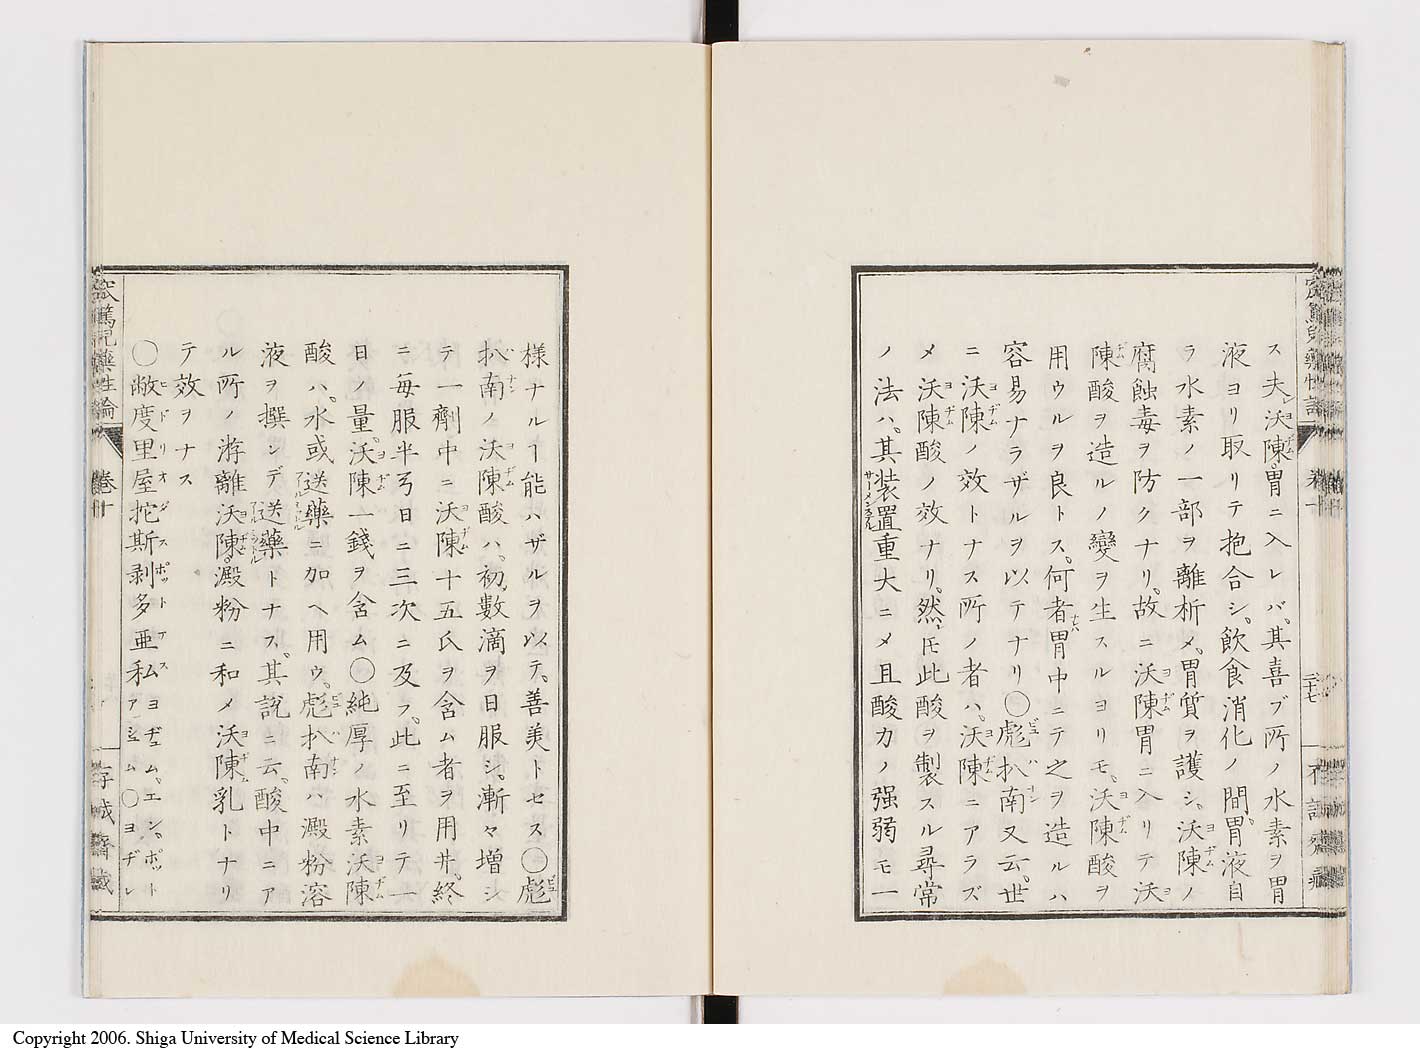 ス夫レ沃陳胃ニ入レバ其喜ブ所ノ水素ヲ胃
液ヨリ取リテ抱合シ飲食消化ノ間胃液自
ラ水素ノ一部ヲ離析メ胃質ヲ護シ沃陳ノ
腐蝕毒ヲ防クナリ故ニ沃陳胃ニ入リテ沃
陳酸ヲ造ルノ變ヲ生スルヨリモ沃陳酸ヲ
用ウルヲ良トス何者胃中ニテ之ヲ造ルハ
容易ナラザルヲ以テナリ〇彪扒南又云世
ニ沃陳ノ效トナス所ノ者ハ沃陳ニアラズ
メ沃陳酸ノ效ナリ然𪜈此酸ヲ製スル尋常
ノ法ハ其装置重大ニメ且酸力ノ强弱モ一
様ナルヿ能ハザルヲ以テ善美トセス〇彪
扒南ノ沃陳酸ハ初數滴ヲ日服シ漸々増シ
テ一劑中ニ沃陳十五氏ヲ含ム者ヲ用井終
ニ毎服半弓日ニ三次ニ及フ此ニ至リテ一
日ノ量沃陳一錢ヲ含ム〇純厚ノ水素沃陳
酸ハ水或送藥ニ加ヘ用ウ彪扒南ハ澱粉溶
液ヲ撰ンデ送藥トナス其説ニ云酸中ニア
ル所ノ游離沃陳澱粉ニ和メ沃陳乳トナリ
テ效ヲナス
〇敞度里屋挖斯剥多亜私 ヨヂュム、エン、ポット アーシュム〇ヨヂレ
卷十
二十七